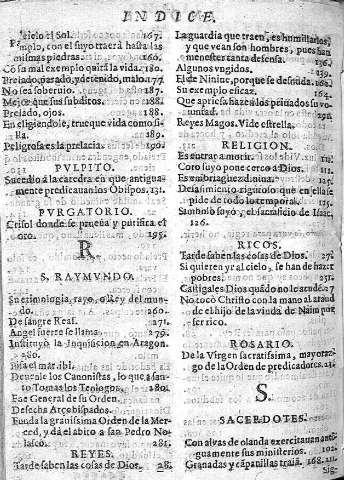 INDICE.
cielo el Sol. 167.
Exemplo, con el suyo traerà hasta las
mismas piedras. 166.
Cõ su mal exemplo quita la vida. 180.
Prelado, parado, y detenido, malo. 177.
No sea soberuio. 187.
Mejor que sus subditos. 188.
Prelado, ojos. 188.
En eligiendole, trueque vida como silla.
ra. 189.
Peligrosa es la prelacia. 190.
PVLPITO.
Sucedio à la catedra en que antiguamente
predicauan los Obispos. 131.
PVRGATORIO.
Crisol donde se prueua y purifica el
oro. 195.
R
S. RAYMVNDO.
Su etimologia, rayo, o Rey del mundo.
260.
De sangre Real. 271.
Angel fuerte se llama 279.
Instituyò la Inquisicion en Aragon.
280.
Pisa el mar ibi.
Deuenle los Canonistas, lo que a santo
Tomas los Teologos. 280.
Fue General de su Orden.
Desecha Arçobispados.
Funda la grauissima Orden de la Merced,
y dà el abito a san Pedro Nolasco.
281.
REYES.
Tarde saben las cosas de Dios. 28.
La guardia que traen, es humillarlos,
y que vean son hombres, pues han
menester tanta defensa. 136.
Algunos vngidos. 139.
El de Niniue, porque se desnuda. 162.
Su exemplo eficaz.
Que apriessa hazen los priuados su voluntad.
Reyes Magos. Vide estrella.
RELIGION.
Es entrar a morir.
Coro suyo pone cerco a Dios. 111.
Es embriaguez diuina. 125.
Desasimiento riguroso que en ella se
pide de todo lo temporal. 125.
Simbolo suyo, el sacrificio de Isaac,
126.
RICOS.
Tarde saben las cosas de Dios. 27
Si quieren yr al cielo, se han de hazer
pobres. 31.
Castigales Dios quãdo no les acude. 27
No tocò Christo con la mano al ataud
del hijo de la viuda de Naim por
ser rico.
ROSARIO.
De la Virgen sacratissima, mayorazgo
de la Orden de predicadores. 231.
S.
SACERDOTES.
Con alvas de olanda exercitauan antiguamente
sus ministerios. 102.
Granadas y cãpanillas traia. 168. 211.
Sig-